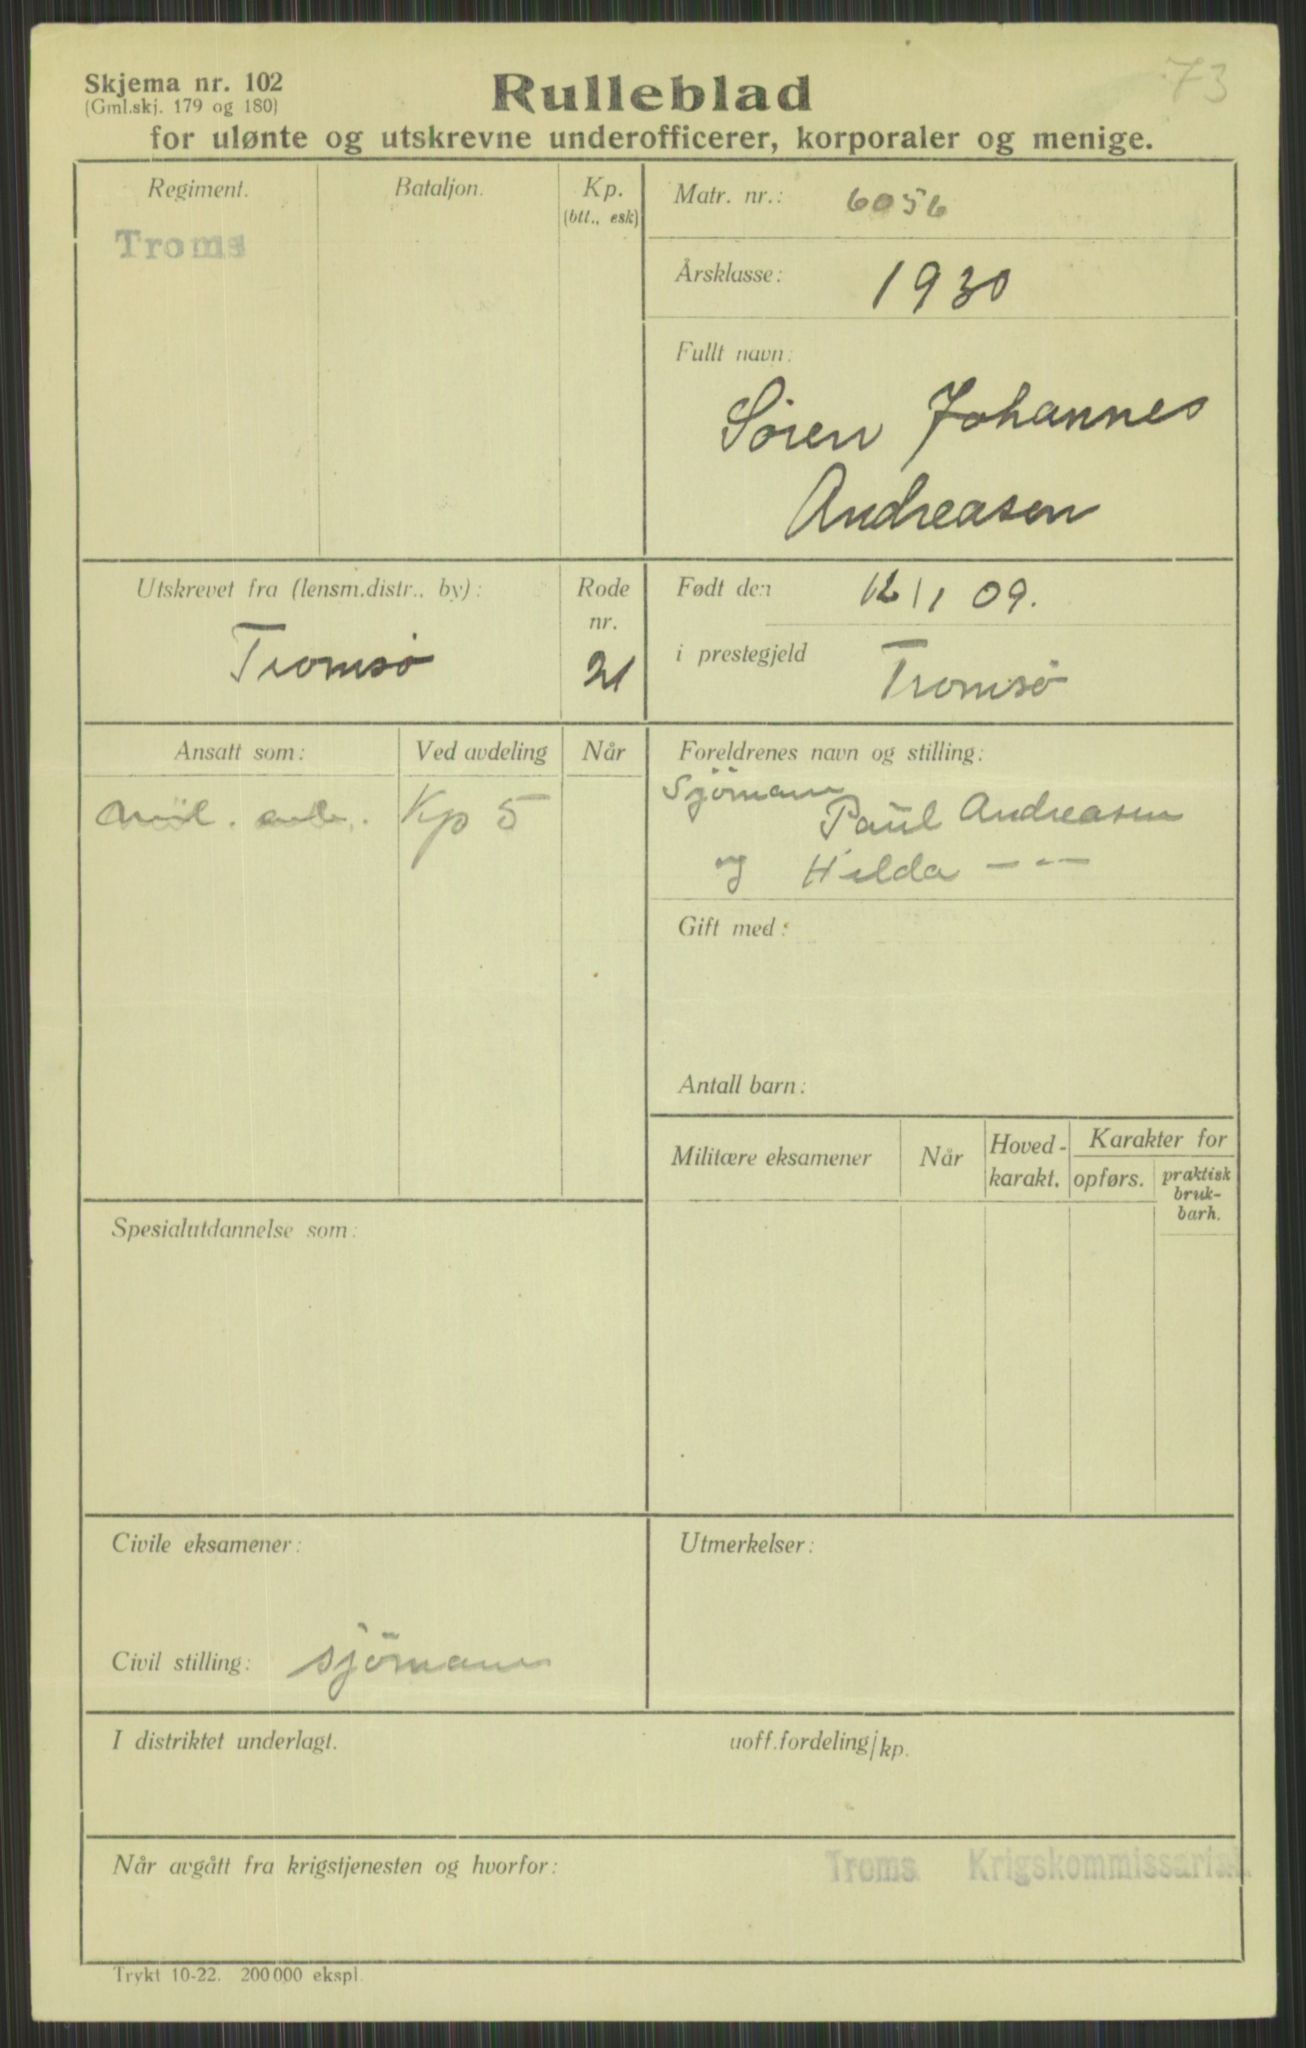 73
Skjema nr. 102
(Gml.skj. 179 og 180)
Rulleblad
for ulønte og utskrevne underofficerer, korporaler og menige.
Regiment.
Bataljon.
Kp.
(btt., esk)
Troms
Matr. nr.: 6056
Årsklasse: 1930
Fullt navn:
Søren Johannes
Andreasen
Utskrevet fra (lensm.distr.. by):
Tromsø
Rode
nr.
21
Født den 12/1 09.
i prestegjeld Tromsø
Ansatt som:
Ved avdeling
Når
Kp 5
Foreldrenes navn og stilling:
Sjömann
Paul Andreasen
og Hilda — - —
Gift med:
Antall barn:
Militære eksamener
Når
Hoved-
karakt.
Karakter for
opførs.
praktisk
bruk-
barh.
Spesialutdannelse som:
Civile eksamener:
Civil stilling: sjömann
Utmerkelser:
I distriktet underlagt.
uoff.fordeling/kp.
Når avgått fra krigstjenesten og hvorfor:
Troms Krigskommissariat.
Trykt 10-22. 200 000 ekspl.